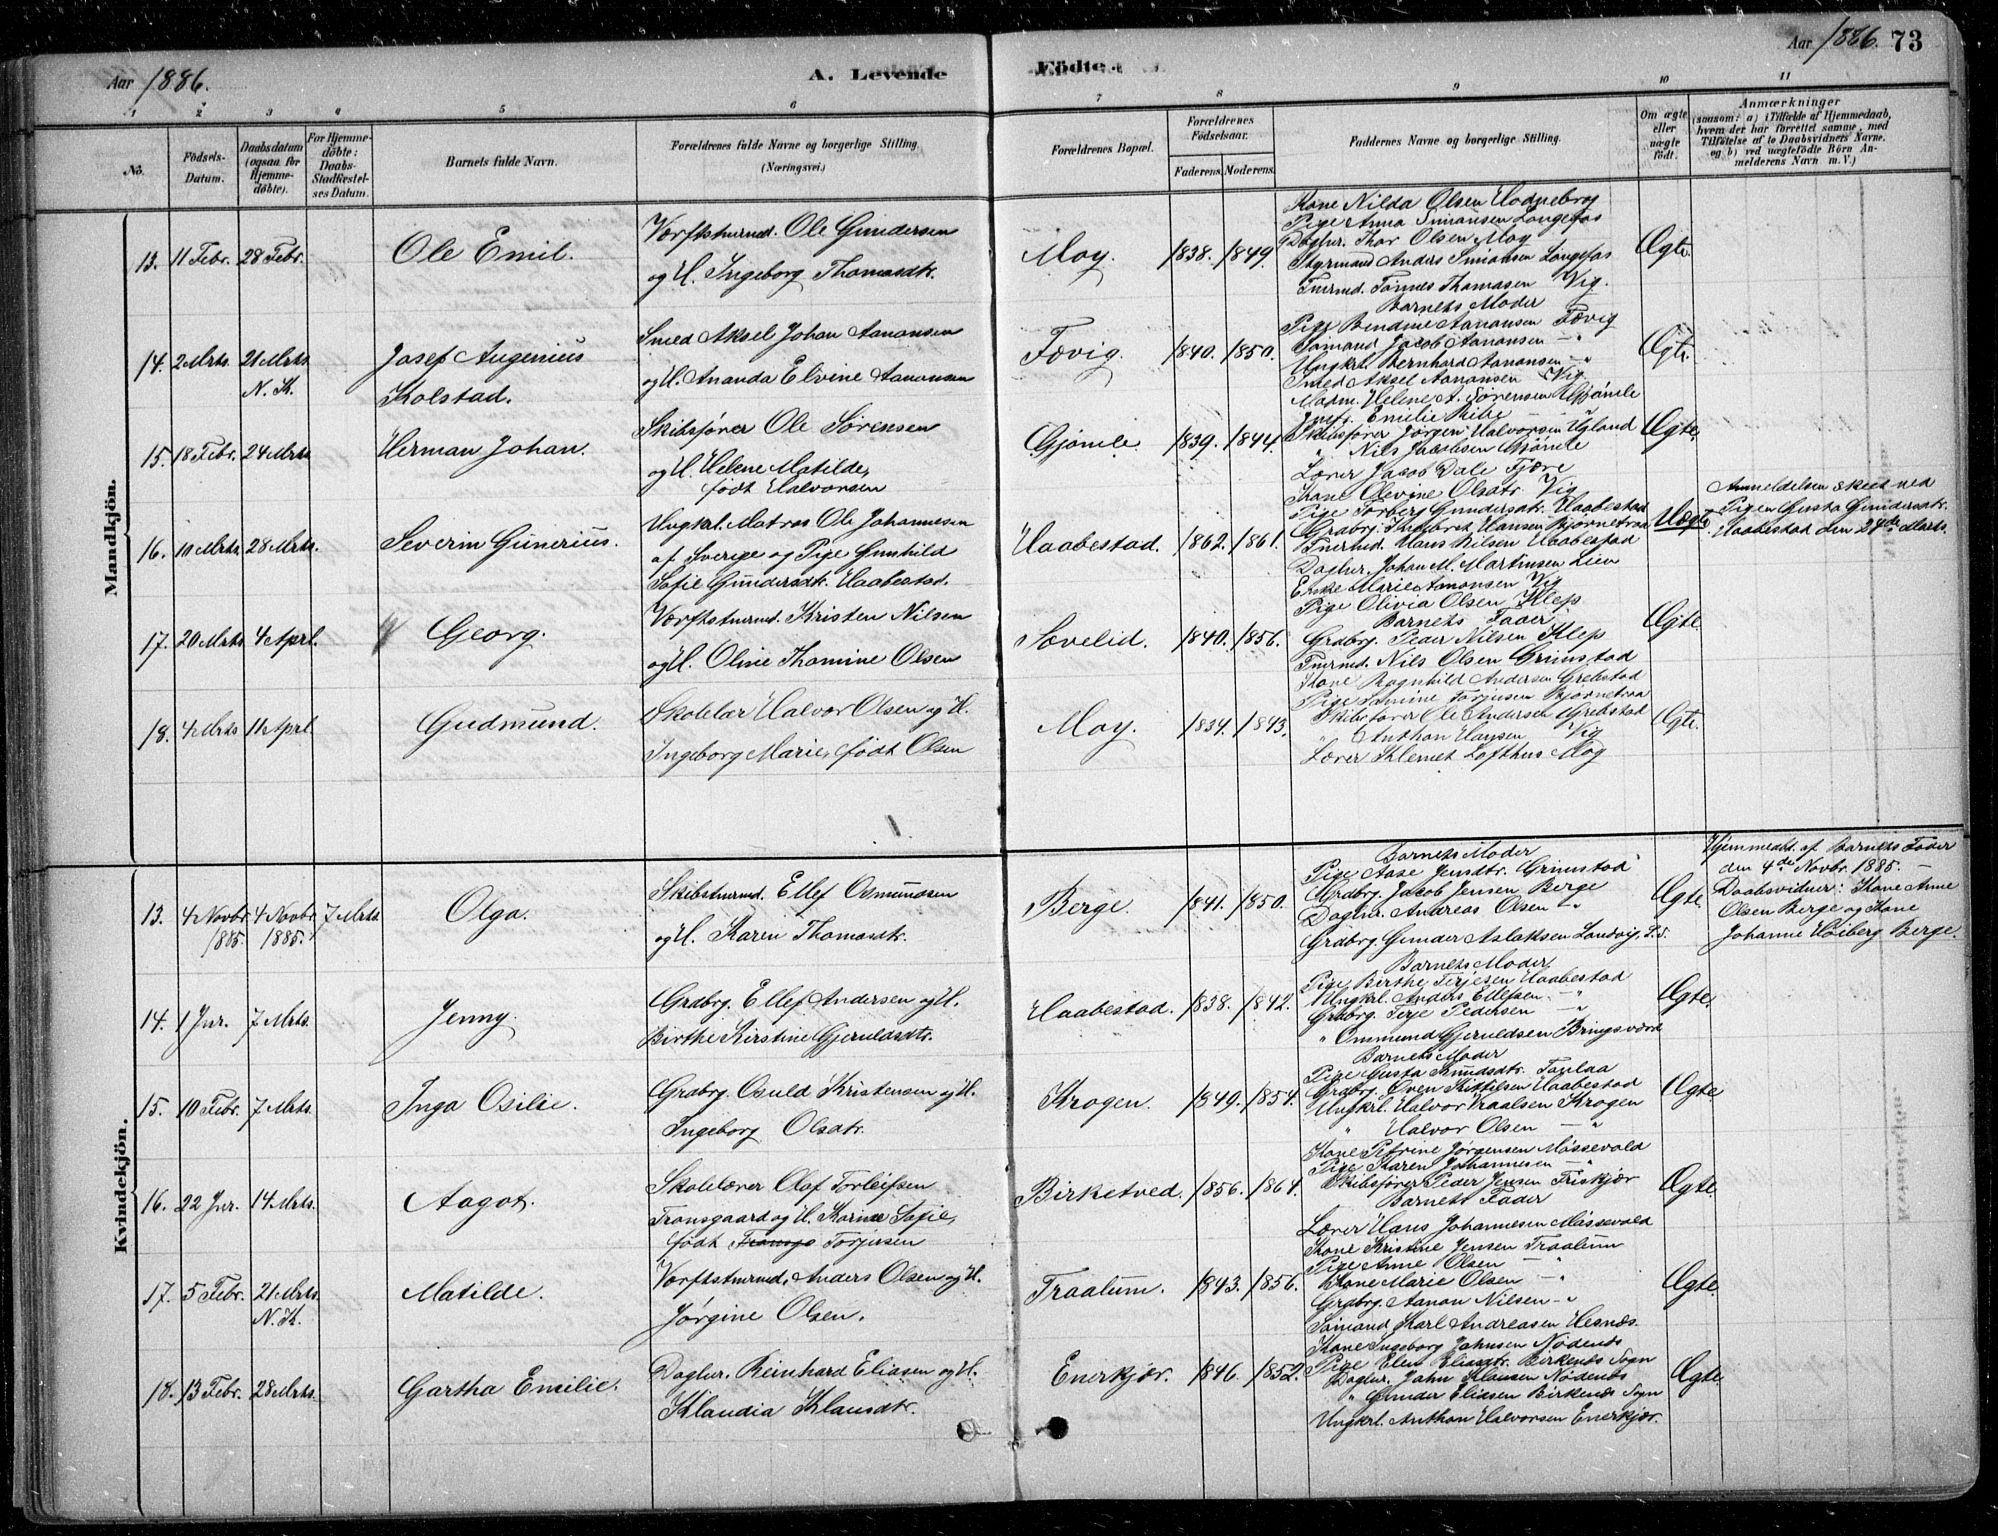 Aar 1886.
A. Levende
Födte.
Aar 1886. 73
1 2 3 4 5 6 7 8 9 10 11
No.
Födsels-Datum.
Daabsdatum (ogsaa for Hjemmedöbte).
For Hjemmedöbte: Daabs Stadfæstelses Datum.
Barnets fulde Navn.
Forældrenes fulde Navne og borgerlige Stilling. (Næringsvei.)
Forældrenes Bopæl.
Forældrenes Födselsaar.
Faderens. Moderens.
Faddernes Navne og borgerlige Stilling.
Om ægte eller uægte født.
Anmærkninger
(saasom: a) i Tilfælde af Hjemmedaab, hvem der har forrettet samme, med Tilföielse af to Daabsvidners Navne. og b) ved uægtefödte Börn Anmelderens Navn m. V.)
Mandkjön.
13. 11 Febr. 28 Febr. Ole Emil.
Værftstmrmd. Ole Gundersen
og H. Ingeborg Thomasdtr.
Moy. 1838. 1849.
Kone Nilda Olsen Hodneborg
Pige Anna Simonsen Longefos
Daglnr. Thor Olsen Moy
Styrmand Anders Simonsen Longefos
Tmrmd. Tönnes Thomasen Vig.
Ægte.
14. 2 Mrts. 21 Mrts. N. K. Josef Augenius
Kolstad.
Smed Aksel Johan Aanonsen
og H. Ananda Elvine Aanonsen
Fævig. 1840. 1850.
Barnets Moder
Pige Bendine Aanonsen Fævig
Sömand Jacob Aanonsen — "
Ungkrl. Bernhard Aanonsen — "
Smed Aksel Aanonsen Vig.
Ægte.
15. 18 Febr. 24 Mrts. Herman Johan.
Skibsfører Ole Sörensen
og H. Helene Matilde,
født Halvorsen
Gjömle. 1839. 1844.
Madm. Helene A. Sörensen Gjömle
Jnfr. Emilie Ribe
Skibsfører Jørgen Halvorsen Ugland
" Nils Jacobsen Gjömle
Lærer Jacob Dale Fjære
Ægte.
16. 10 Mrts. 28 Mrts. Severin Gunerius.
Ungkrl. Matros Ole Johannesen
af Sverige og Pige Gunhild
Sofie Gundersdtr. Haabestad.
Haabestad. 1862. 1861.
Kone Olevine Olsdtr. Vig
Pige Torberg Gundersdtr. Haabestad
Grdbrg. Ingebret Hansen Bjørnetraa
Tmrmd. Hans Nilsen Haabestad
Daglnr. Johan M. Martinsen Lien
Uægte
Anmeldelsen skeet ved
Pigen Gusta Gundersdtr.
Haabestad den 24de Marts.
17. 20 Mrts. 4 Aprl. Georg.
Værftstmrmd. Kristen Nilsen
og H. Oline Thomine Olsen
Sævelid. 1840. 1856.
Enke Marie Amonsen Vig
Pige Olivia Olsen Klep
Barnets Fader
Grdbrg. Peder Nilsen Klep
Tmrmd. Nils Olsen Grimstad
Ægte
18. 4 Mrts 11 Aprl. Gudmund.
Skolelær. Halvor Olsen og H.
Ingeborg Marie, født Olsen
Moy. 1834. 1843.
Kone Ragnhild Andersen Grebstad
Pige Samine Torjusen Bjørnetraa
Skibsfører Ole Andersen Grebstad
" Anthon Hansen Vig
Lærer Klemet Lofthus Moy
Ægte.
Kvindekjön.
13. 4 Novbr. 1885. 4 Novbr. 1885. 7 Mrts. Olga.
Skibstmrmd. Ellef Osmundsen
og H. Karen Thomasdtr.
Berge. 1841. 1850.
Barnets Moder
Pige Aase Jensdtr. Grimstad
Grdbrg. Jacob Jensen Berge
Daglnr. Andreas Olsen — "
Grdbrg. Gunder Aslaksen Landvig, P. S.
Ægte
Hjemmedbt. af Barnets Fader
den 4de Novbr. 1885. —
Daabsvidner: Kone Anne
Olsen Berge og Kone
Johanne Høiberg Berge.
14. 1 Jnr. 7 Mrts. Jenny.
Grdbrg. Ellef Andersen og H.
Birthe Kirstine Gjeruldsdtr.
Haabestad. 1838. 1842.
Barnets Moder
Pige Birthe Terjesen Haabestad
Ungkrl. Anders Ellefsen. — "
Grdbrg. Terje Pedersen — "
" Ommund Gjeruldsen Bringsværd
Ægte.
15. 10 Febr. 7 Mrts. Inga Osilie.
Grdbrg. Osuld Kristensen og H.
Ingeborg Olsdtr.
Krogen. 1849. 1854.
Barnets Moder
Pige Gusta Knudsdtr. Taulaa
Grdbrg. Oven Kittilsen Haabestad
Ungkrl. Halvor Vraalsen Krogen
" Halvor Olsen — "
Ægte
16. 22 Jnr. 14 Mrts. Aagot.
Skolelærer Olaf Torleifsen
Tronsgaard og H. Karine Sofie,
født Tronsga Torjusen
Birketved. 1856. 1864.
Kone Petrine Jørgensen Mössevold
Pige Karen Johannesen — "
Skibsfører Peder Jensen Friskjær
Barnets Fader
Lærer Hans Johannesen Mössevold
Ægte.
17. 5 Febr. 21 Mrts. N. K. Matilde.
Værftstmrmd. Anders Olsen og H.
Jørgine Olsen.
Traalum. 1843. 1856.
Kone Kristine Jensen Traalum
Pige Anne Olsen — "
Kone Marie Olsen — "
Grdbrg. Aanon Nilsen — "
Sömand Karl Andreasen Hesnæs.
Ægte.
18. 13 Febr. 28 Mrts. Gartha Emilie.
Daglnr. Reinhard Eliasen og H.
Klaudia Klausdtr.
Enerkjær. 1846. 1852.
Kone Ingeborg Johnsen Nödenæs
Pige Elen Eliasdtr. Birkenæs Sogn
Daglnr. John Klausen Nödenæs
" Gunder Eliasen Birkenæs Sogn
Ungkrl. Anthon Halvorsen Enerkjær.
Ægte.